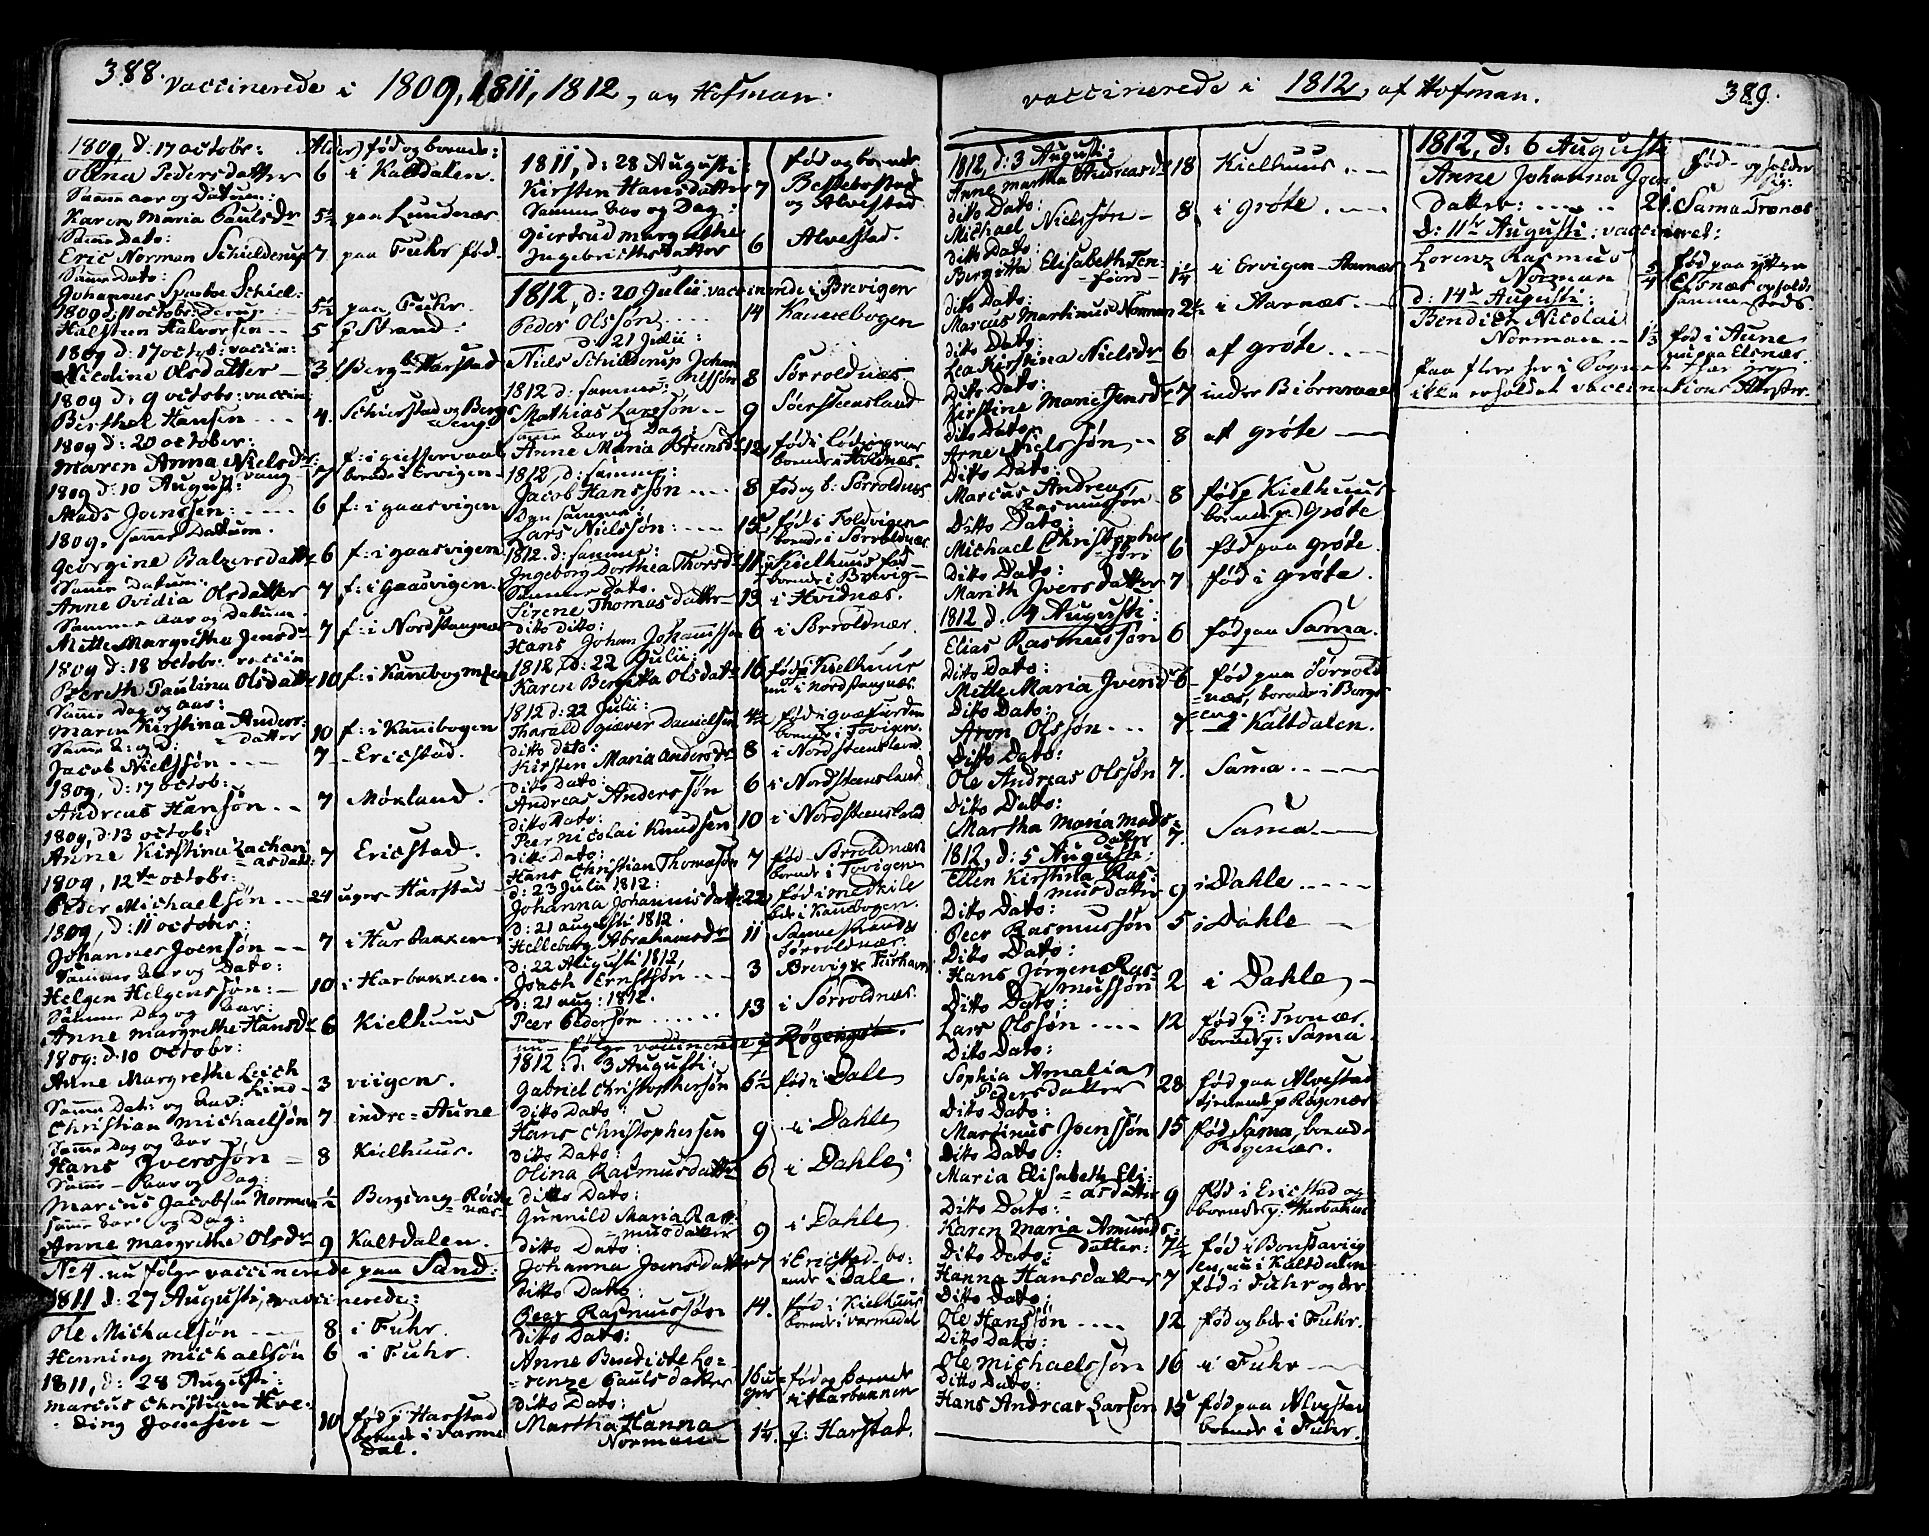 388.
vaccinerede i 1809, 1811, 1812, av Hofman.
1809, d: 17 octobr: Alder fød og boende:
Olina Pedersdatter 6 i Kaltdalen.
Samme aar og Datum:
Karen Maria Paulsdr 5½ paa Lundnæs
Samme Dato:
Eric Norman Schielderup 7 paa Fuhr fød.
Samme Dato:
Johannes Schiel-
derup 5½ paa Fuhr.
1809 d: 11 octobr:
Halsten Halvorsen 5 p Strand:
1809 d: 17 octob: vaccin:
Nicoline Olsdatter 3 Berg Harstad
1809 d: 9 octobr: vaccin:
Berthel Hansen 4. Schierstad og Bergs
eng
1809 d: 20 october:
Maren Anna Nielsdr 7 f: i
vang boende i Ervigen
1809 d: 10 August:
Mads Joensen: 6 f: i gaasvigen
1809, samme Datum.
Georgine Balzersdatter 6 f: i gaasvigen
Samme Datum:
Anne Ovidia Olsdatter 7 f: i Gaasvigen.
Samme Aar og Datum.
Mette Margretha Jensdr 7 f: i Nordstangnæs
1809 d: 18 octobr: vaccin
Bereth Paulina Olsdattr 10 f: i Kannebogen
Samme Dag og aar:
Maren Kirstina Anders-
datter 10 f: i Kannebogen
Samme
Jacob Nielssøn 7 - Ericstad.
1809, d: 17 octob:
Andreas Hansøn 7 Møkland.
1809, d: 13 octob:
Anne Kirstina Zachari
asdatr: 7 Ericstad.
1809, 12te octobr:
Peder Michaelsøn 24 uger Harstad
1809, d: 11 octobr:
Johannes Joensøn 7 i Harbakken
Samme Aar og Dato:
Helgen Helgenssøn: 10 i Harbakken.
Samme Dag og Aar:
Anne Margrethe Hansdr 6 Kielhuus
1809: d: 10 octobr:
Anne Margrethe Leich
Lind 3 viigen.
Samme Dat: og Aar:
Christian Michaelsøn 7 indre-Aune
Samme Dag og Aar
Hans Iverssøn 8 Kielhuus.
Samme Aar og Dag:
Marcus Jacobsen Norman ½ Bergseng-Røckenæs
Samme Aar og Dag:
Anne Margrethe Olsdr 9 Kaltdalen.
No 4. nu følge vaccinerede paa Sand:
1811 d: 27 Augusti, vaccinerede:
Ole Michaelsøn 8 i Fuhr.
Henning Michaelsøn 6 i Fuhr.
1811, d: 28 Augusti:
Marcus Christian Hve-
ding Joensøn 10 fød p Harstad
boende i Varme
Dal.
1811, d: 28 Augusti: fød og boende
Kirsten Hansdatter 7 Bessebostad
og Alvestad
Samme Aar og Dag:
Giertrud Margrethe
Ingebrichtsdatter 6 Alvestad.
1812, d: 20 Julii vaccinerede i Brevigen
Peder Olssøn, 14 Kannebogen
d: 21 Julii:
Niels Schilderup Johan
nessøn 8 Sørroldnæs
1812 d: samme:
Mathias Larssøn 9 Sørsteensland
samme Aar og Dag:
Anne Maria Beensdr 12 fød i lødingnæs
boende i Hvidnæs.
1812, d: samme:
Jacob Hanssøn 8 fød og b: Sørroldnæs
Dyn samme:
Lars Nielssøn: 15 fød i Foldvigen
boende i Sørroldnæs
1812. d: samme:
Ingeborg Dorthea Thorsdr 11 i Kielhuus fød
boende i Brevig
Samme Dato.
Sirene Thomasdatter 13 i Hvidnæs.
ditto ditto:
Hans Johan Johanssøn 6 i Sørroldnæs.
1812 d: 22 Julii:
Karen Bergitta Olsdatr 16 fød i Kielhuus
nu i Nordstangnæs.
1812 d: 22 Julii:
Tharald Giæver Danielsøn 4½ fød i qvæfiorden
boende i Tovigen.
ditto dato:
Kirsten Maria Andersdr 8 i Nordsteensland.
ditto Dato:
Andreas Anderssøn 6 i Nordsteensland
ditto Dato:
Peer Nicolai Knudsen 10 i Nordsteensland
ditto Dato:
Hans Christian Thomasøn 7 fød Sørroldnæs
boende i Tovigen
d: 23 Julii 1812:
Johanna Johannisdatter 22 fød i medkile
bde i Kannebogen.
d: 21 augusti 1812.
Helleborg Abrahamsdr 11 Samestrand
Sørroldnæs.
d: 22 Augusti 1812,
Joach Ernstsøn 3 Brevig
d: 21 aug: 1812.
Peer Pedersøn 13 i Sørroldnæs.
nu følge vaccinerede p Røgenæs.
1812: d: 3 Augusti:
Gabriel Christophersøn 6½ fød i Dale
ditto Dato:
Hans Christophersen 9 i Dahle
ditto Dato:
Olina Rasmusdatter 6 i Dahle
ditto Dato:
Gunnild Maria Ras-
musdatter 9 i Dahle
ditto Dato:
Johanna Joensdatter 7 i Ericstad bo-
ende i Dale.
ditto Dato:
Peer Rasmussøn 14. fød i Kielhuus
boende i varmedal
ditto Dato:
Anne Bendicte Lo-
renze Paulsdatter 16 u- fød og boende
ger i Harbakken
ditto Dato:
Martha Hanna
Norman 1¼ f: Harstad.
vaccinerede i 1812, af Hofman.
389.
1812, d: 3 Augusti:
Anne Martha Andreasdr 18 Kielhuus
ditto Dato:
Michael Nielssøn 8 i Grøte.
ditto Dato:
Bergitta Elisabeth Ten-
fiord 1¼ i Ervigen-Aarnæs
ditto Dato:
Marcus Martinus Norman 2½ i Aarnæs.
ditto Dato:
Lea Kirstina Nielsdr 6 af Grøte.
ditto Dato:
Kirstine Marie Jensdr 7 inder Biørnraae
ditto Dato:
Arne Nielssøn, 8 af Grøte
Ditto Dato:
Marcus Andreas
Rasmussøn 8 fød p Kielhuus
boende p Grøte
Ditto Dato:
Michael Christopher
søn 6 fød paa Grøte.
Ditto Dato:
Marith Iversdatter 7 fød i Grøte.
1812 d. 4 Augusti:
Elias Rasmussøn 6 fød paa Sama.
Ditto Dato:
Mette Maria Ivendr 6 fød paa Sørrold
næs, boende i Bergs
eng.
Ditto Dato:
Aron Olssøn 7 Kaltdalen.
Ditto Dato:
Ole Andreas Olssøn 7. Sama.
Ditto Dato:
Martha Maria Mads-
datter 7. Sama
1812, d: 5 Augusti:
Ellen Kirstina Ras-
musdatter 9 i Dahle
Ditto Dato:
Peer Rasmussøn 5 i Dahle
Ditto Dato:
Hans Jørgen Ras-
mussøn 2 i Dahle
Ditto Dato:
Lars Olssøn 12 fød p: Tronæs.
boende p: Sama.
Ditto Dato:
Sophia Amalia
Pedersdatter 28 fød paa Alvestad
tjenende p Røgenæs
Ditto Dato:
Martinus Joenssøn 15 fød Sama, boende
Røgenæs.
Ditto Dato:
Maria Elisabeth Eli-
asdatter 9 fød i Ericstad og
boende p: Harbakken
Ditto Dato:
Karen Maria Amunds-
datter: 7½ fød i
nu i Kaltdalen
Ditto Dato:
Hanna Hansdatter 7 fød i Fuhr og der
Ditto Dato:
Ole Hanssøn 12 fød og bde i Fuhr.
Ditto Dato:
Ole Michaelssøn 16 i Fuhr
Ditto Dato:
Hans Andreas Larsen 15 fød paa Alvestad
boende i Fuhr.
1812, d: 6 Augusti fød og holder
sig:
Anne Johanna Joens
datter: 21. Sama Tronæs
d: 11te Augusti: vaccineret:
Lorenz Rasmus
Norman 5/4 fød paa ytter
Elsnæs og holder
sammesteds
d: 14de Augusti:
Bendich Nicolai
Norman 1⅓ fød i Aune
nu paa Elsnæs.
Paa flere her i Sognet har jeg
ikke erholdet vaccinations Attester.